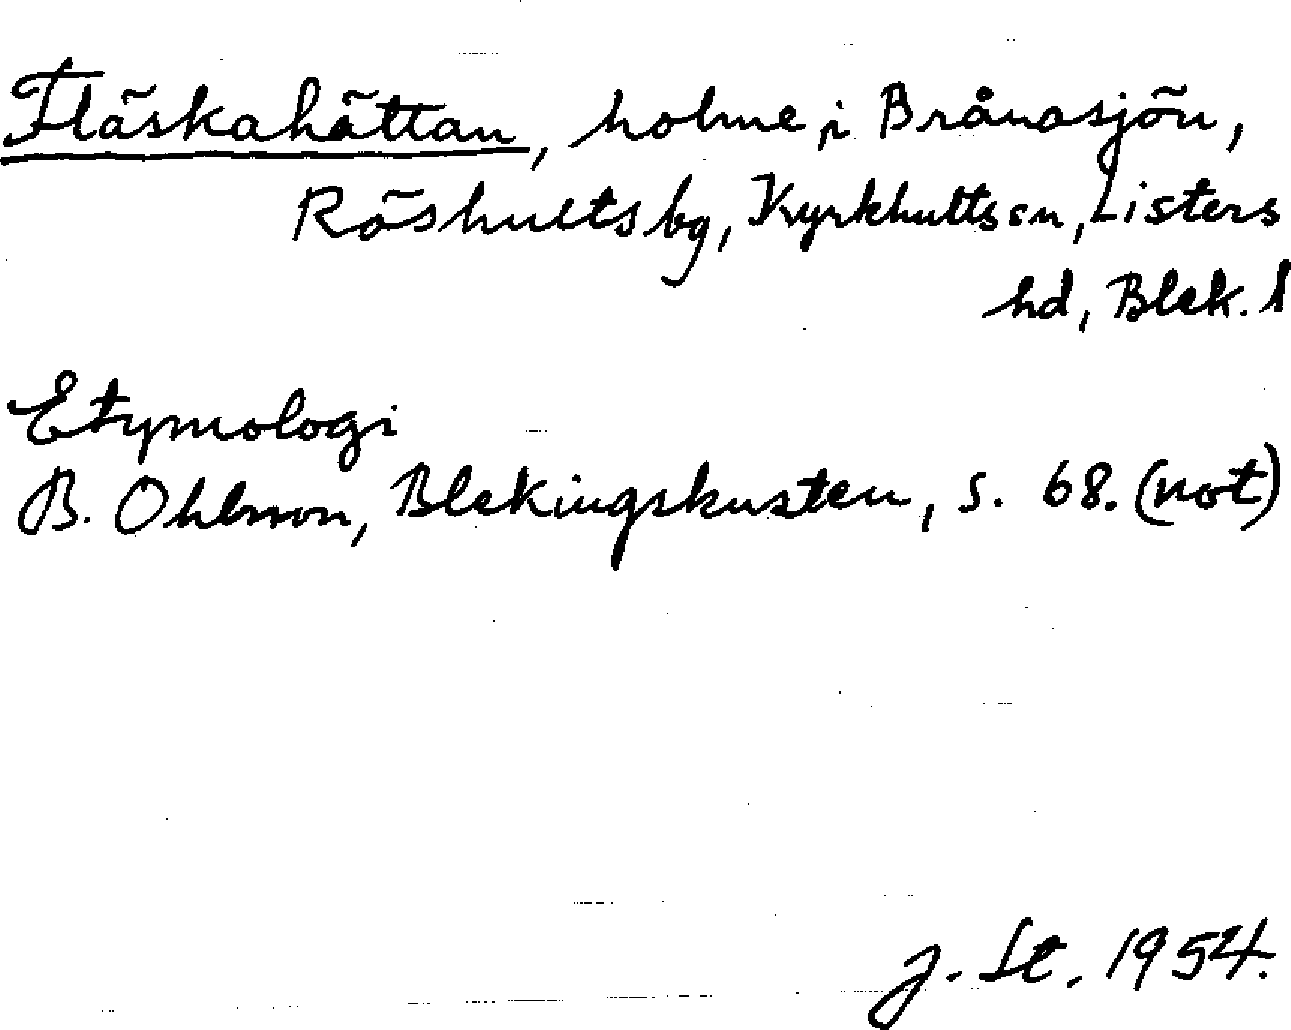 Fläskahättan, holme i Brånasjön,
Röshults bg, Kyrkhults sn, Listers
hd, Blek. l
Etymologi
B. Ohlsson, Blekingskusten, s. 68. (not)
J. St. 1954.